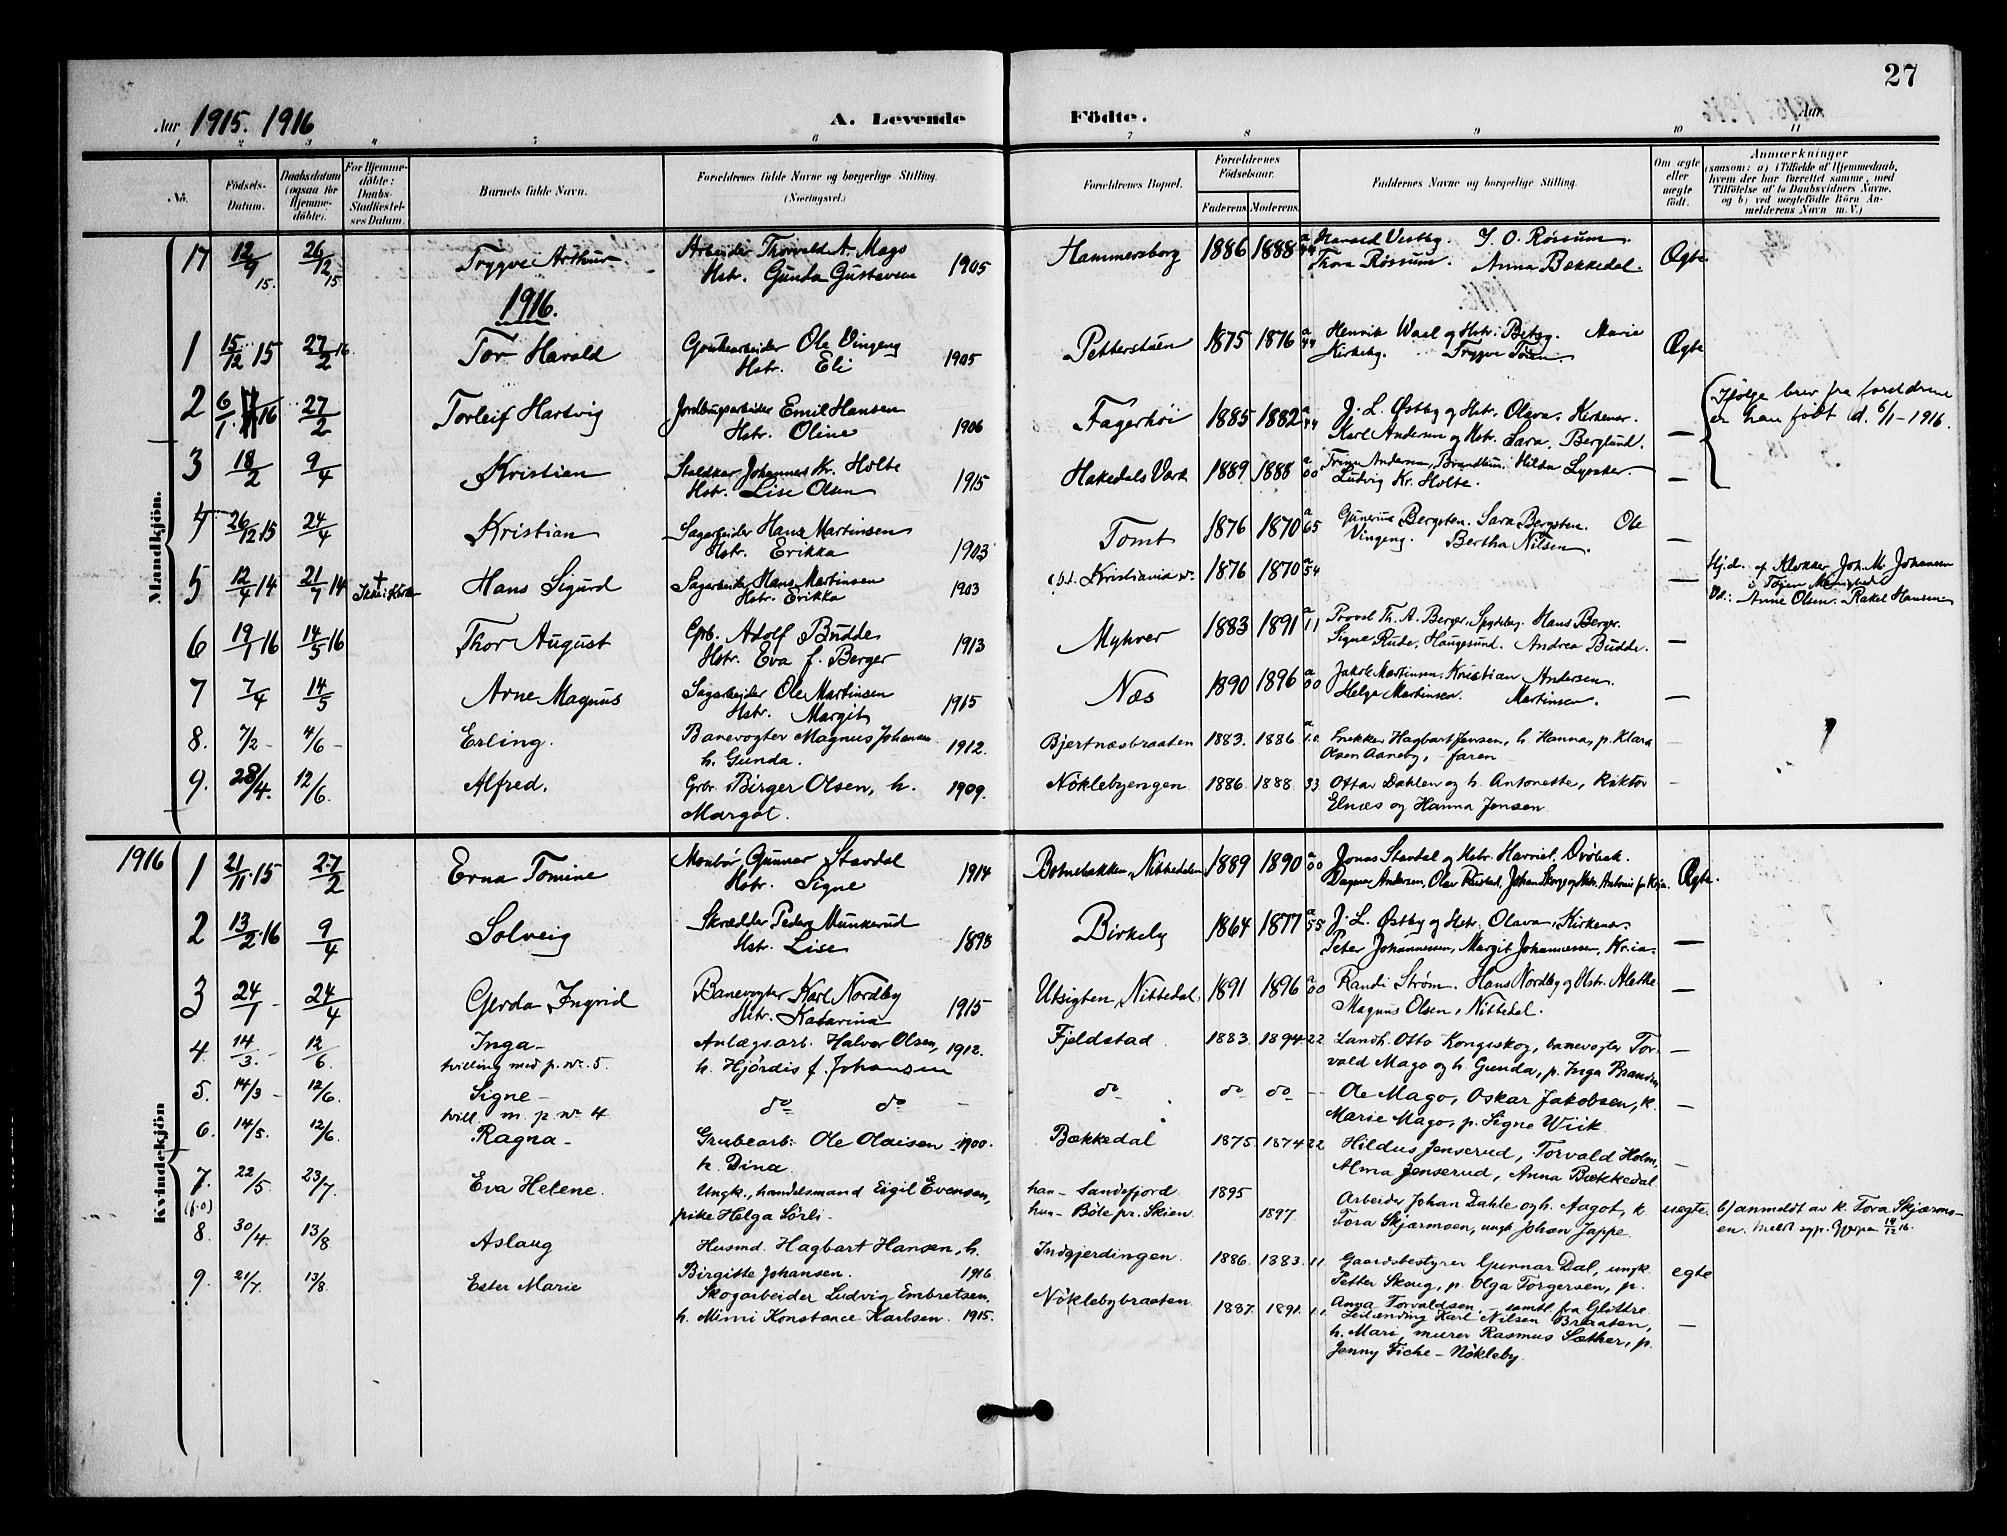 27
Aar 1915. 1916 A. Levende Födte. Aar
1 2 3 4 5 6 7 8 9 10 11
No. Födsels-Datum. Daabsdatum (ogsaa for Hjemme-döbte). For Hjemme-döbte: Daabs-Stadfæstelses Datum. Barnets fulde Navn. Forældrenes fulde Navne og borgerlige Stilling. (Næringsvei.) Forældrenes Bopæl. Forældrenes Födselsaar. Faderens. Moderens. Faddernes Navne og borgerlige Stilling. Om ægte eller uægte födt. Anmærkninger (saasom: a) i Tilfælde af Hjemmedaab, hvem der har forrettet samme, med Tilföielse af to Daabsvidners Navne, og b) ved uægtefödte Börn Anmelderens Navn m. V.)
Mandkjön.
17 12/9 15. 26/12 15 Trygve Arthur Arbeider Thorvald A. Mago Hstr. Gunda Gustavsen 1905 Hammersborg 1886 1888 Harald Vestby. S. O. Røssum. Thora Røssum. Anna Bækkedal. Ægte
1916.
1 15/12 15 27/2 16 Tor Harald Grubearbeider Ole Vingeng Hstr. Eli 1905 Petterstuen 1875 1876 a 44 Henrik Waal og Hstr. Marie Kirkeby. Trygve Ægte
2 6/1 16 27/2 Torleif Hartvig Jordbrugsarbeider Emil Hansen Hstr. Oline 1906 Fagerhöi 1885 1882 a 44 J. L. Østby og Hstr. Olava, Kirkener. Karl Andersen og Hstr. Sara, Berglund. — Ifølge brev fra foreldrene er han født d. 6/1-1916.
3 18/2 9/4 Kristian Staldkar Johannes Kr. Holte Hstr. Lise Olsen 1915 Hakedals Værk 1889 1888 a 00 Trine Andersen, Hilda Lysaker Ludvig Kr. Holte. —
4 26/12 15 24/4 Kristian Sagarbeider Hans Martinsen Hstr. Erikka 1903 Tomt 1876 1870 a 65 Gunerius Bergsten. Sara Bergsten. Ole Vingeng. Bertha Nilsen. —
5 12/4 14 21/7 14 Ikke i Kirken Hans Sigurd Sagarbeider Hans Martinsen Hstr. Erikka 1903 Kristiania 1876 1870 a 54 — Hj.d. af Klokker Joh. M. Johansen i Tøien Menighed Vid.: Anne Olsen. Rakel Hansen
6 19/1 16 14/5 16 Thor August Gprb. Adolf Budde Hstr. Eva f. Berger 1913 Myhrer 1883 1891 a 11 Provst Th. A. Berger, Spydeberg. Hans Berger. Signe Rude, Haugesund. Andrea Budde. —
7 7/4 14/5 Arne Magnus Sagarbeider Ole Martinsen Hstr. Margit 1915 Næs 1890 1896 a 00 Jakob Martinsen. Kristian Andersen. Helga Martinsen. Martinsen. —
8. 7/2 - 4/6 - Erling. Banevogter Magnus Johansen h. Gunda. 1912. Bjertnæsbraaten 1883. 1886 Snekker Hagbart Jensen, h. Hanna, p. Klara Olsen Aaneby, - faren —
9. 28/4. 12/6. Alfred. Grbr. Birger Olsen, h. Margot. 1909. Nöklebyengen 1886. 1888. 33 Ottar Dahlen og h. Antonette, Elnæs og Hanna Jensen. —
1916
Kvindekjön
1 21/11 15 27/2 Erna Tomine Montör Gunnar Stavdal Hstr. Signe 1914 Nittedalen 1889 1890 a 00 Jonas Stavdal og Hstr. Harriet, Dagmar Andersen, Olav Ægte.
2 13/2 16 9/4 Solveig Skrædder Peder Munkerud Hstr. Lise 1898 Birkely 1864 1877 a 55 J. L. Østby og Hstr. Olava, Kirkener Peter Johannesen, Margit Johannessen, Kr.ia. —
3 24/1 - 24/4 Gerda Ingrid Banevogter Karl Nordby Hstr. Katarina 1915 Utsigten, Nittedal, 1891 1896 a 00 Randi Strøm. Hans Nordby og Hstr. Alethe Magnus Olsen, Nittedal. —
4. 14/3. - 12/6. Inga - tvilling med p. nr. 5. Anlægsarb. Halvor Olsen, h. Hjördis f. Johansen 1912. Fjeldstad 1883. 1894 22 Landh. Otto Kongsskog, banevogter Torvald Mago og h. Gunda, p. Inga —
5. 14/3 - 12/6. Signe - tvill. m. p. nr. 4 do do — do do do — Ole Mago, Oskar Jakobsen, k. Marie Mago, p. Signe Wiik. —
6. 14/5. 12/6. Ragna - Grubearb. Ole Olaisen h. Dina. 1900. Bækkedal 1875. 1874 22 Hildus Jenserud, Torvald Holm, Alma Jenserud, Anna Bækkedal —
7. (f.o) 22/5. 23/7. Eva Helene. Ungk., handelsmand Eigil Evensen, pike Helga Sörli. han - Sandefjord hun - Böle pr. Skien 1895 1897. Arbeider Johan Dahle og h. Aagot, k. Tora Skjærmoen, ungk. Johan Jappe. uegte. b) anmeldt av k. Tora Skjærmoen.
8. 30/4. 13/8 Aslaug Husmd. Hagbart Hansen, h. Birgitte Johansen. 1916 Indgjerdingen 1886. 1883. 11 Gaardsbestyrer Gunnar Dal, ungk. Petter Skaug, p. Olga Torgersen, p. Anna Torvaldsen, - samtl. fra Glittre. egte
9. 21/7. 13/8. Ester Marie Skogarbeider Ludvig Embretsen, h. Mimi Konstance Karlsen. 1915. Nöklebybraaten. 1887. 1891. 11 Leilænding Karl Nilsen Braaten, h. Mari, murer Rasmus Sæther, p. Jenny Fiche - Nökleby. —